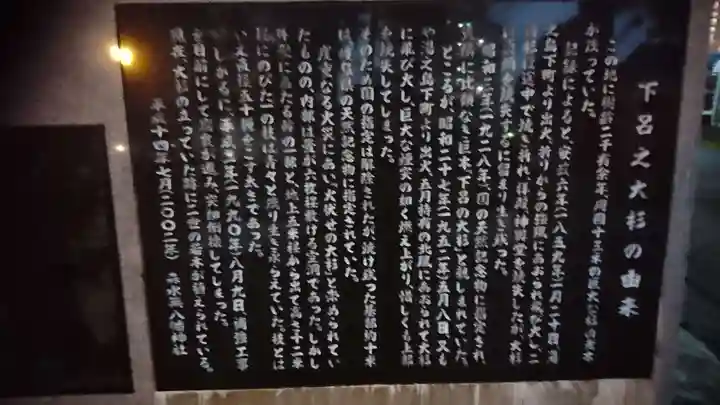 下呂之大杉の由来
この地に樹齢二千有余年、周囲十三米の巨大な杉の大木
が茂っていた。
記録によると、安政六年(一八五九年)一月二十四日
之島下町より出火、折りからの強風にあおられ飛び火し
途中で焼き折れ、拝殿、神財堂を焼失したが、大杉
に留まり生き残った。
昭和三年(一九二八年)、国の天然記念物に指定され、
巨木、下呂の大杉と親しまれていた。
ところが、昭和二十七年(一九五二年)五月八日、又も
や湯之島下町より出火、五月特有の北風にあおられて大杉
に飛び火し、巨大な煙突の如く燃え上がり、惜しくも上部
を焼失してしまった。
そのため国の指定は解除されたが、焼け残った基部約十米
は岐阜県の天然記念物に指定されていた。
度重なる火災にあい「火伏せの大杉」と崇められてい
たものの、内部は畳が六枚程敷ける空洞であった。しかし
にあたる南の隅と、地上五米程から出て高さ十二米
にのびた一の枝は青々と茂り生き永らえていた。枝とは
いえ直径五十糎をこす太さであった。
しかるに、平成二年(一九九〇年)八月九日、補強工事
を目前にして腐敗も進み、突如倒壊してしまった。
現在、大杉の立っていた跡に二世の若木が植えられている。
平成十四年七月(二〇〇二年) 森水無八幡神社